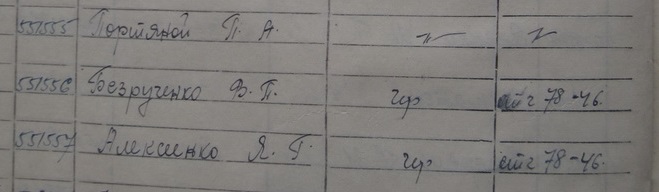 551555 Портяной П. А. —〃— —〃—
551556 Безрученко Ф. П. гр ст 78-46.
551557 Алексенко Я. Г. гр ст 78-46.